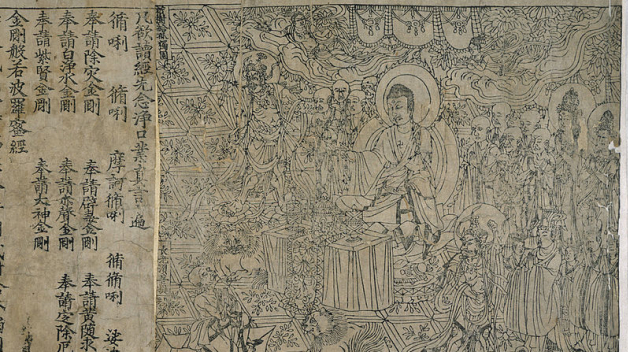 凡欲讀經先念淨口業真言一遍
脩唎 脩唎 摩訶脩唎 脩脩唎 娑
奉請除災金剛 奉請辟毒金剛 奉請黃隨求
奉請白淨水金剛 奉請赤聲金剛 奉請定除厄
奉請紫賢金剛 奉請大神金剛
金剛般若波羅蜜經